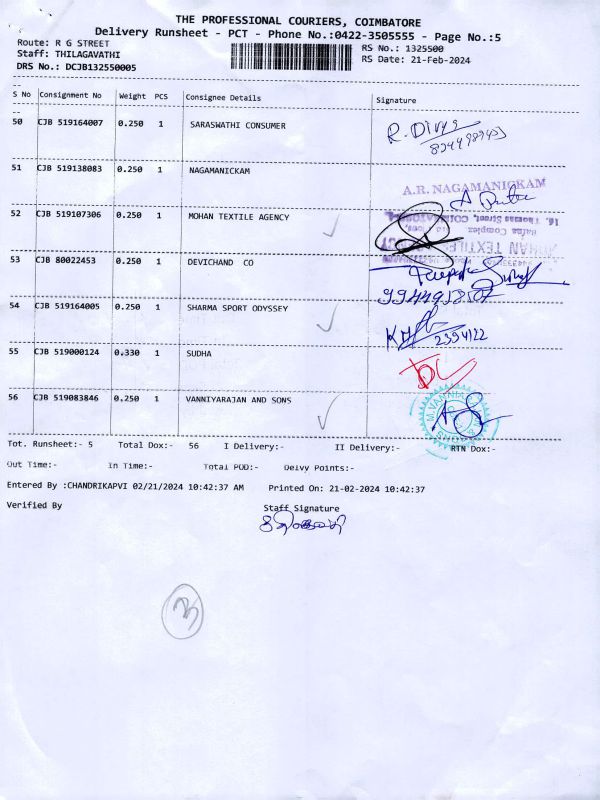 THE PROFESSIONAL COURIERS, COIMBATORE
Delivery Runsheet - PCT - Phone No.:0422-3505555 - Page No.:5
Route: R G STREET RS No.: 1325500
Staff: THILAGAVATHI RS Date: 21-Feb-2024
DRS No.: DCJB132550005
S No Consignment No Weight PCS Consignee Details Signature
50 CJB 519164007 0.250 1 SARASWATHI CONSUMER R. Divya
51 CJB 519138083 0.250 1 NAGAMANICKAM
A.R. NAGAMANICKAM
52 CJB 519107306 0.250 1 MOHAN TEXTILE AGENCY
16, Thomas Street, COIMBATORE
Complex
53 CJB 80022453 0.250 1 DEVICHAND CO
54 CJB 519164005 0.250 1 SHARMA SPORT ODYSSEY
2394122
55 CJB 519000124 0.330 1 SUDHA
56 CJB 519083846 0.250 1 VANNIYARAJAN AND SONS
Tot. Runsheet:- 5 Total Dox:- 56 I Delivery:- II Delivery:- RTN Dox:-
Out Time:- In Time:- Total POD:- Delvy Points:-
Entered By :CHANDRIKAPVI 02/21/2024 10:42:37 AM Printed On: 21-02-2024 10:42:37
Verified By Staff Signature
3